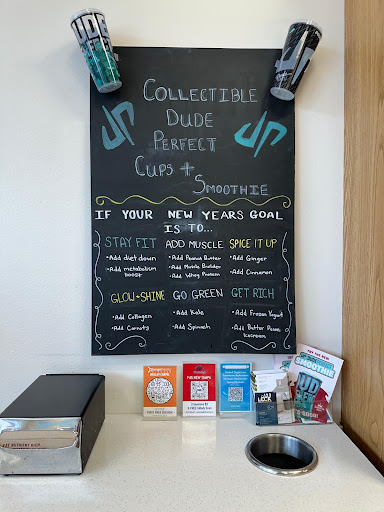 COLLECTIBLE
DUDE
PERFECT
CUPS +
SMOOTHIE
IF YOUR NEW YEARS GOAL
IS TO...
STAY FIT
• Add diet down
• Add metabolism
boost
ADD MUSCLE
• Add Peanut Butter
• Add Muscle Builder
• Add Whey Protein
SPICE IT UP
• Add Ginger
• Add Cinnamon
GLOW + SHINE
• Add Collagen
• Add Carrots
GO GREEN
• Add Kale
• Add Spinach
GET RICH
• Add Frozen Yogurt
• Add Butter Pecan
Icecream
SMOOTHIE